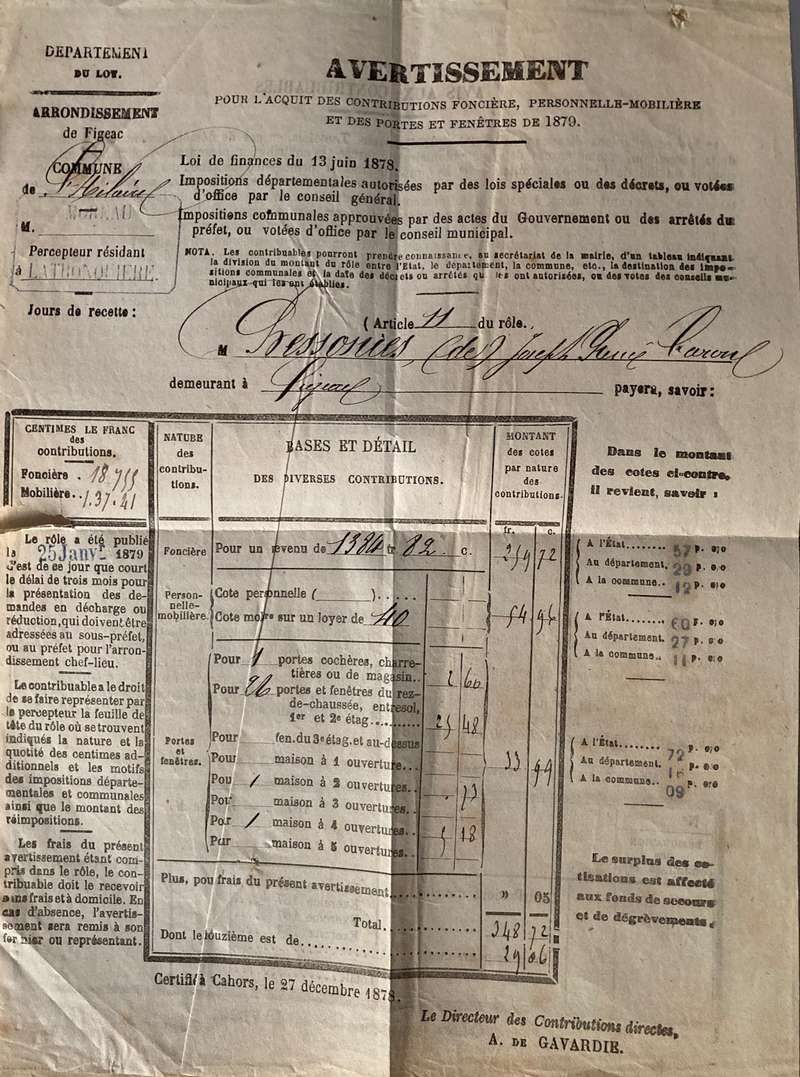 DEPARTEMENT
DU LOT.
ARRONDISSEMENT
de Figeac
COMMUNE
de St Hilaire
M.
Percepteur résidant
à LATRONQUIERE.
Jours de recette:
AVERTISSEMENT
POUR L'ACQUIT DES CONTRIBUTIONS FONCIÈRE, PERSONNELLE-MOBILIÈRE
ET DES PORTES ET FENÊTRES DE 1879.
Loi de finances du 13 juin 1878.
Impositions départementales autorisées par des lois spéciales ou des décrets, ou votées
d'office par le conseil général.
Impositions communales approuvées par des actes du Gouvernement ou des arrêtés du
préfet, ou votées d'office par le conseil municipal.
NOTA. Les contribuables pourront prendre connaissance, au secrétariat de la mairie, d'un tableau indiquant
la division du montant du rôle entre l'État, le département, la commune, etc., la destination des impo-
sitions communales et la date des décrets ou arrêtés qui les ont autorisées, ou des votes des conseils mu-
nicipaux qui les ont établies.
(Article 11 du rôle.
M Pressonies (de) Joseph
demeurant à Figeac payera, savoir:
CENTIMES LE FRANC
des
contributions.
Foncière . 18.755
Mobilière.. 1.37.41
Le rôle a été publié
le 25 Janv. 1879
C'est de se jour que court
le délai de trois mois pour
la présentation des de-
mandes en décharge ou
réduction, qui doivent être
adressées au sous-préfet,
ou au préfet pour l'arron-
dissement chef-lieu.
Le contribuable a le droit
de se faire représenter par
le percepteur la feuille de
tête du rôle où se trouvent
indiqués la nature et la
quotité des centimes ad-
ditionnels et les motifs
des impositions départe-
mentales et communales
ainsi que le montant des
réimpositions.
Les frais du présent
avertissement étant com-
pris dans le rôle, le con-
tribuable doit le recevoir
sans frais et à domicile. En
cas d'absence, l'avertis-
sement sera remis à son
fermier ou représentant.
NATURE
des
contribu-
tions.
BASES ET DÉTAIL
DES DIVERSES CONTRIBUTIONS.
MONTANT
des cotes
par nature
des
contributions.
fr. c.
Foncière Pour un revenu de 1384 fr 82 c. 259 72
Person-
nelle-
mobilière.
Cote personnelle ( )
Cote mobre sur un loyer de 40 54 96
Portes
et
fenêtres.
Pour 1 portes cochères, charre-
tières ou de magasin.. 2 60
Pour 26 portes et fenêtres du rez-
de-chaussée, entresol,
1er et 2e étag. 25 48
Pour fen. du 3e étag. et au-dessus
Pour maison à 1 ouverture... 33 99
Pou 1 maison à 2 ouvertures.. 73
Pour maison à 3 ouvertures..
Pour 1 maison à 4 ouvertures.. 5 18
Pour maison à 5 ouvertures..
Plus, pou frais du présent avertissement » 05
Total 348 72
Dont le douzième est de 29 06
Dans le montant
des cotes ci-contre,
il revient, savoir :
A l'État........ 57 p. 0/0
Au département. 29 p. 0/0
A la commune.. 12 p. 0/0
A l'État........ 60 p. 0/0
Au département. 27 p. 0/0
A la commune.. 11 p. 0/0
A l'État........ 72 p. 0/0
Au département. 16 p. 0/0
A la commune.. 09 p. 0/0
Le surplus des co-
tisations est affecté
aux fonds de secours
et de dégrèvements.
Certifié à Cahors, le 27 décembre 1878.
Le Directeur des Contributions directes,
A. DE GAVARDIE.